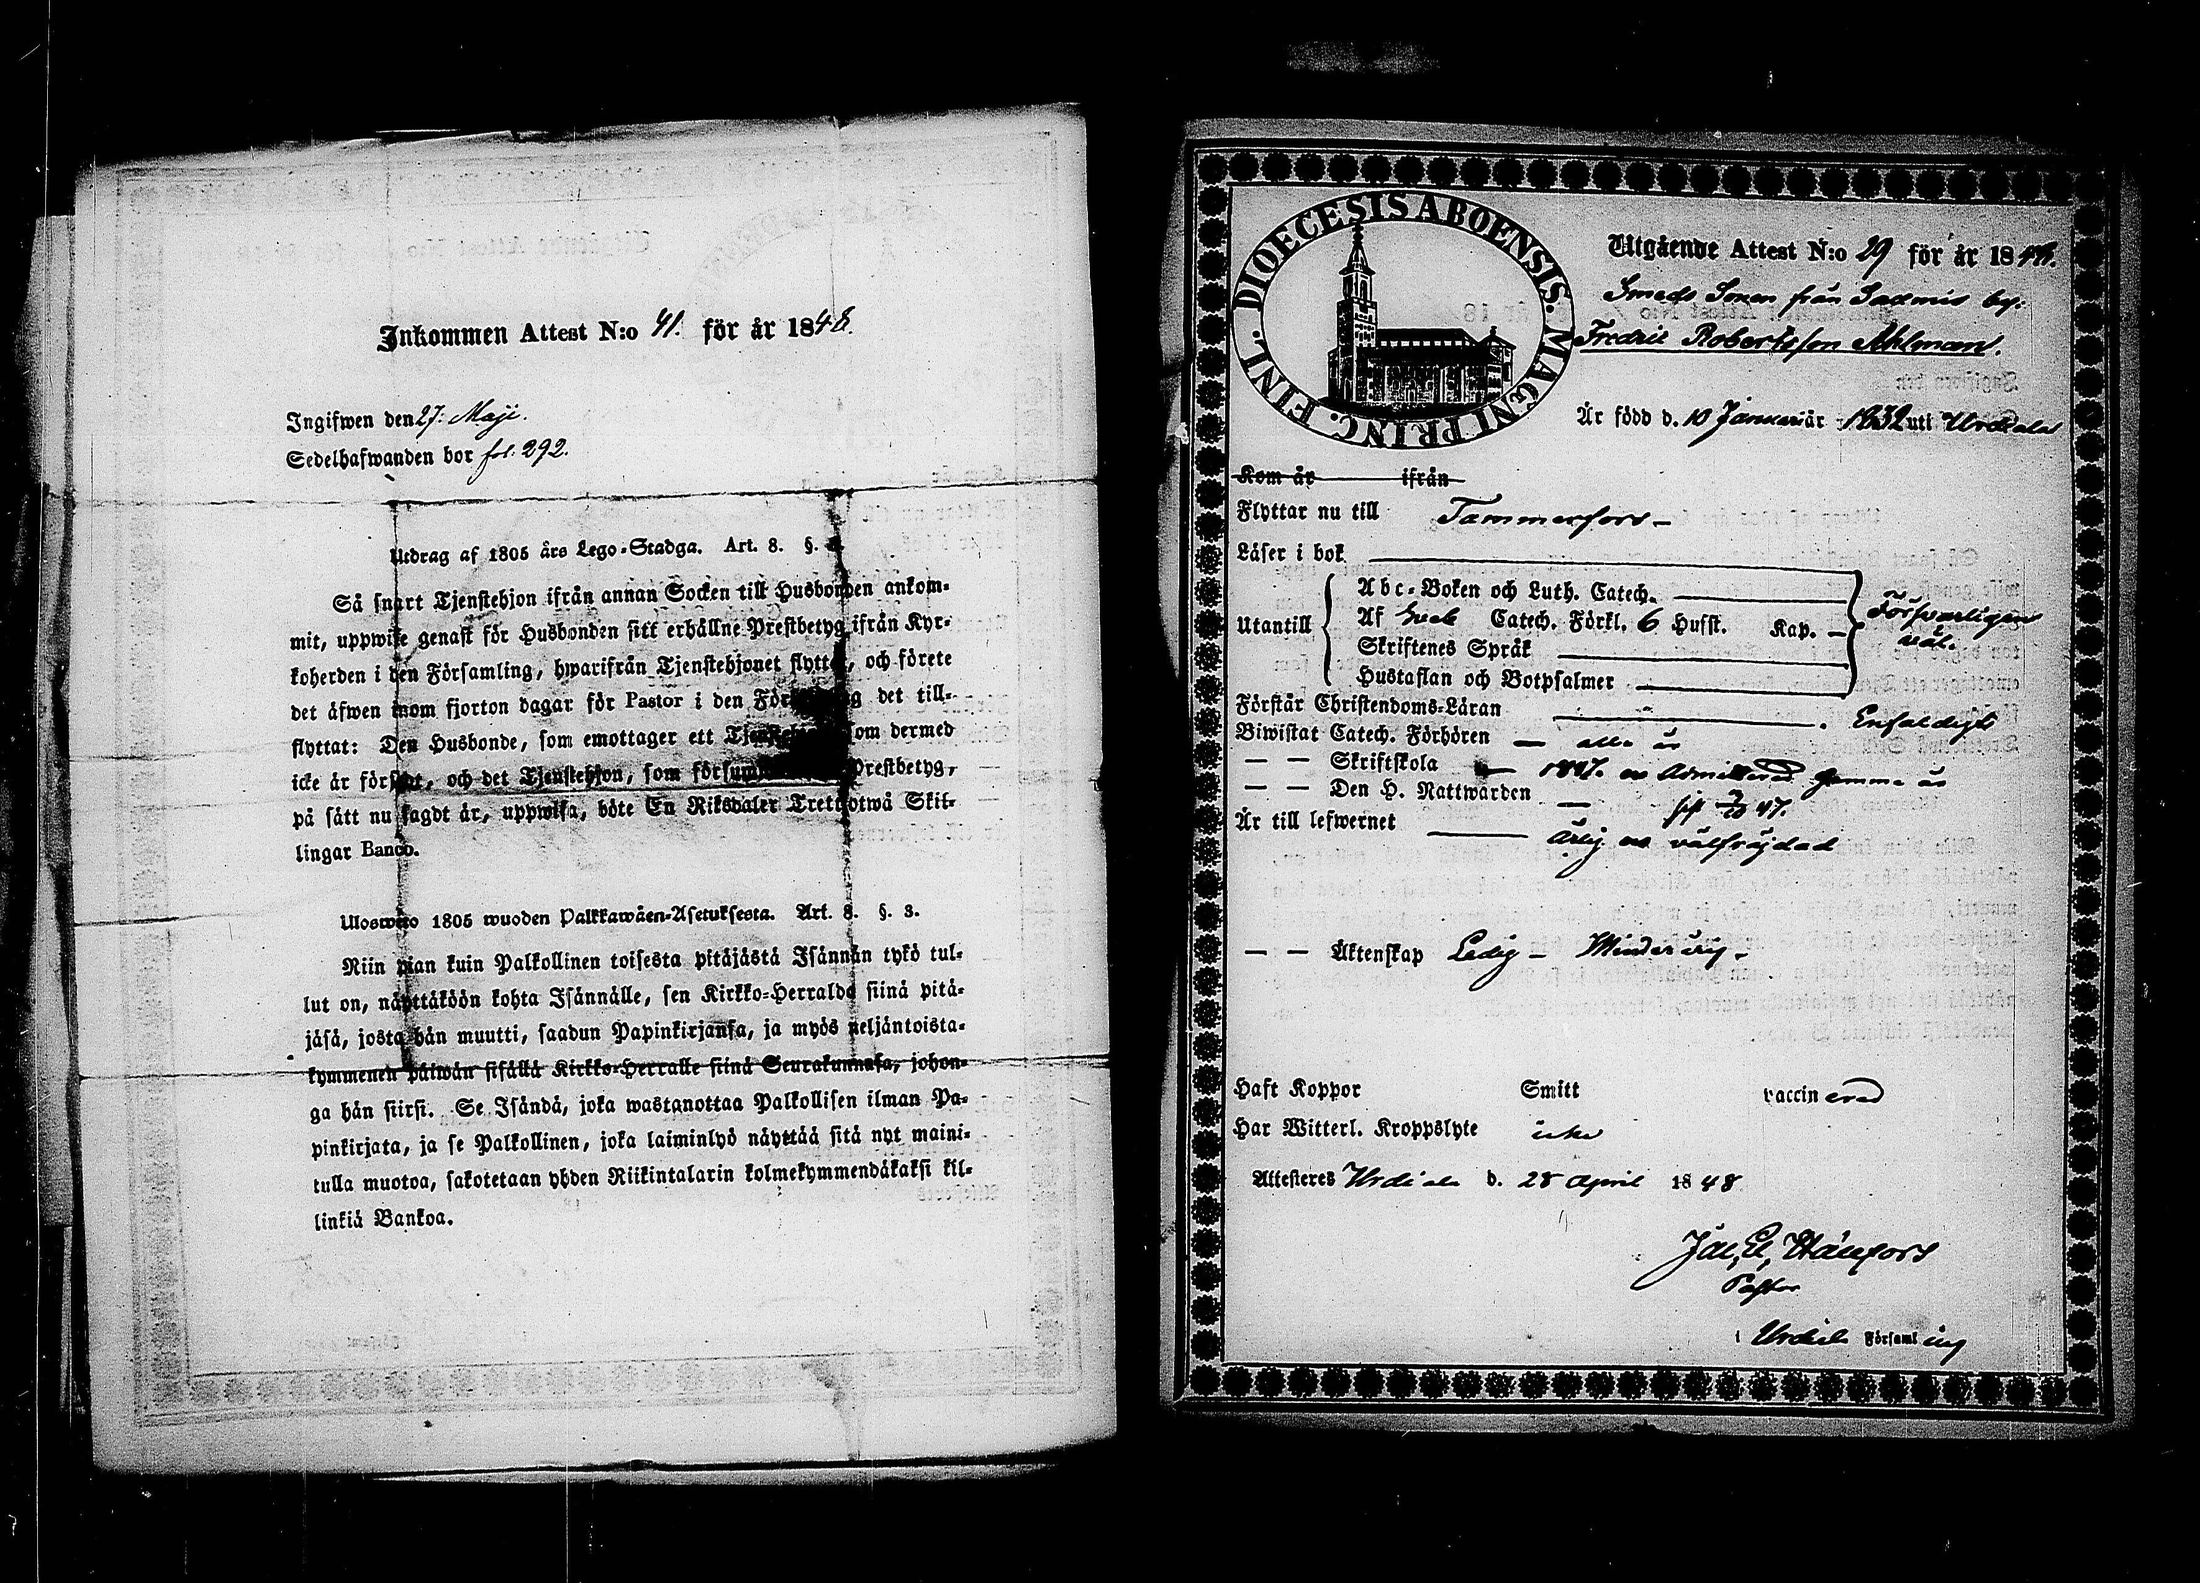 Inkommen Attest N:o 41. för år 1848.
Ingifwen den 27: Maji.
Sedelhafwanden bor fol. 292.
Utdrag af 1805 års Lego-Stadga. Art. 8. §.
Så snart Tjenstehjon ifrån annan Socken till Husbonden ankom-
mit, uppwise genast för Husbonden sitt erhållne Prestbetyg ifrån Kyr-
koherden i den Församling, hwarifrån Tjenstehjonet flyttat, och förete
det äfwen inom fjorton dagar för Pastor i den Församling det till-
flyttat: Den Husbonde, som emottager ett Tjenstehjon som dermed
icke är försedt, och det Tjenstehjon, som försummar Prestbetyg,
på sätt nu sagdt är, uppwisa, böte En Riksdaler Trettiotwå Skil-
lingar Banco.
Ulosweto 1805 wuoden Palkkawäen-Asetuksesta. Art. 8. §. 3.
Niin pian kuin Palkollinen toisesta pitäjästä Isännän tykö tul-
lut on, näyttäköön kohta Isännälle, sen Kirkko-Herralda siinä pitä-
jäsä, josta hän muutti, saadun Papinkirjansa, ja myös neljäntoista-
kymmenen päiwän sisällä Kirkko-Herralle siinä Seurakunnasa, johon-
ga hän siirsi. Se Isändä, joka wastanottaa Palkollisen ilman Pa-
pinkirjata, ja se Palkollinen, joka laiminlyö näyttää sitä nyt maini-
tulla muotoa, sakotetaan yhden Riikintalarin kolmekymmendäkaksi kil-
linkiä Bankoa.
DIOECESIS ABOENSIS. MAGNI PRINC. FINL.
Utgående Attest N:o 29 för år 1848.
Smeds Sonen från by.
Fredric Robertsson Ahlman.
Är född d. 10 Januari år 1832 uti Urdiala
Kom år ifrån
Flyttar nu till Tammerfors
Läser i bok
Abc-Boken och Luth. Catech.
Utantill Af Catech. Förkl. 6 Hufst. Kap. Försvarligen
Skriftenes Språk väl.
Hustaflan och Botpsalmer
Förstår Christendoms-Läran Enfaldigt
Biwistat Catech. Förhören alla år
— — Skriftskola 1847. o Admitterad samma år
— — Den H. Nattwarden 47.
Är till lefwernet Ärlig o välfrägdad
— — Äktenskap Ledig - Minderårig.
Haft Koppor Smitt vaccinerad
Har Witterl. Kroppslyte icke
Attesteres Urdiala d. 28 April 1848
Pastor
i Urdiala Församling